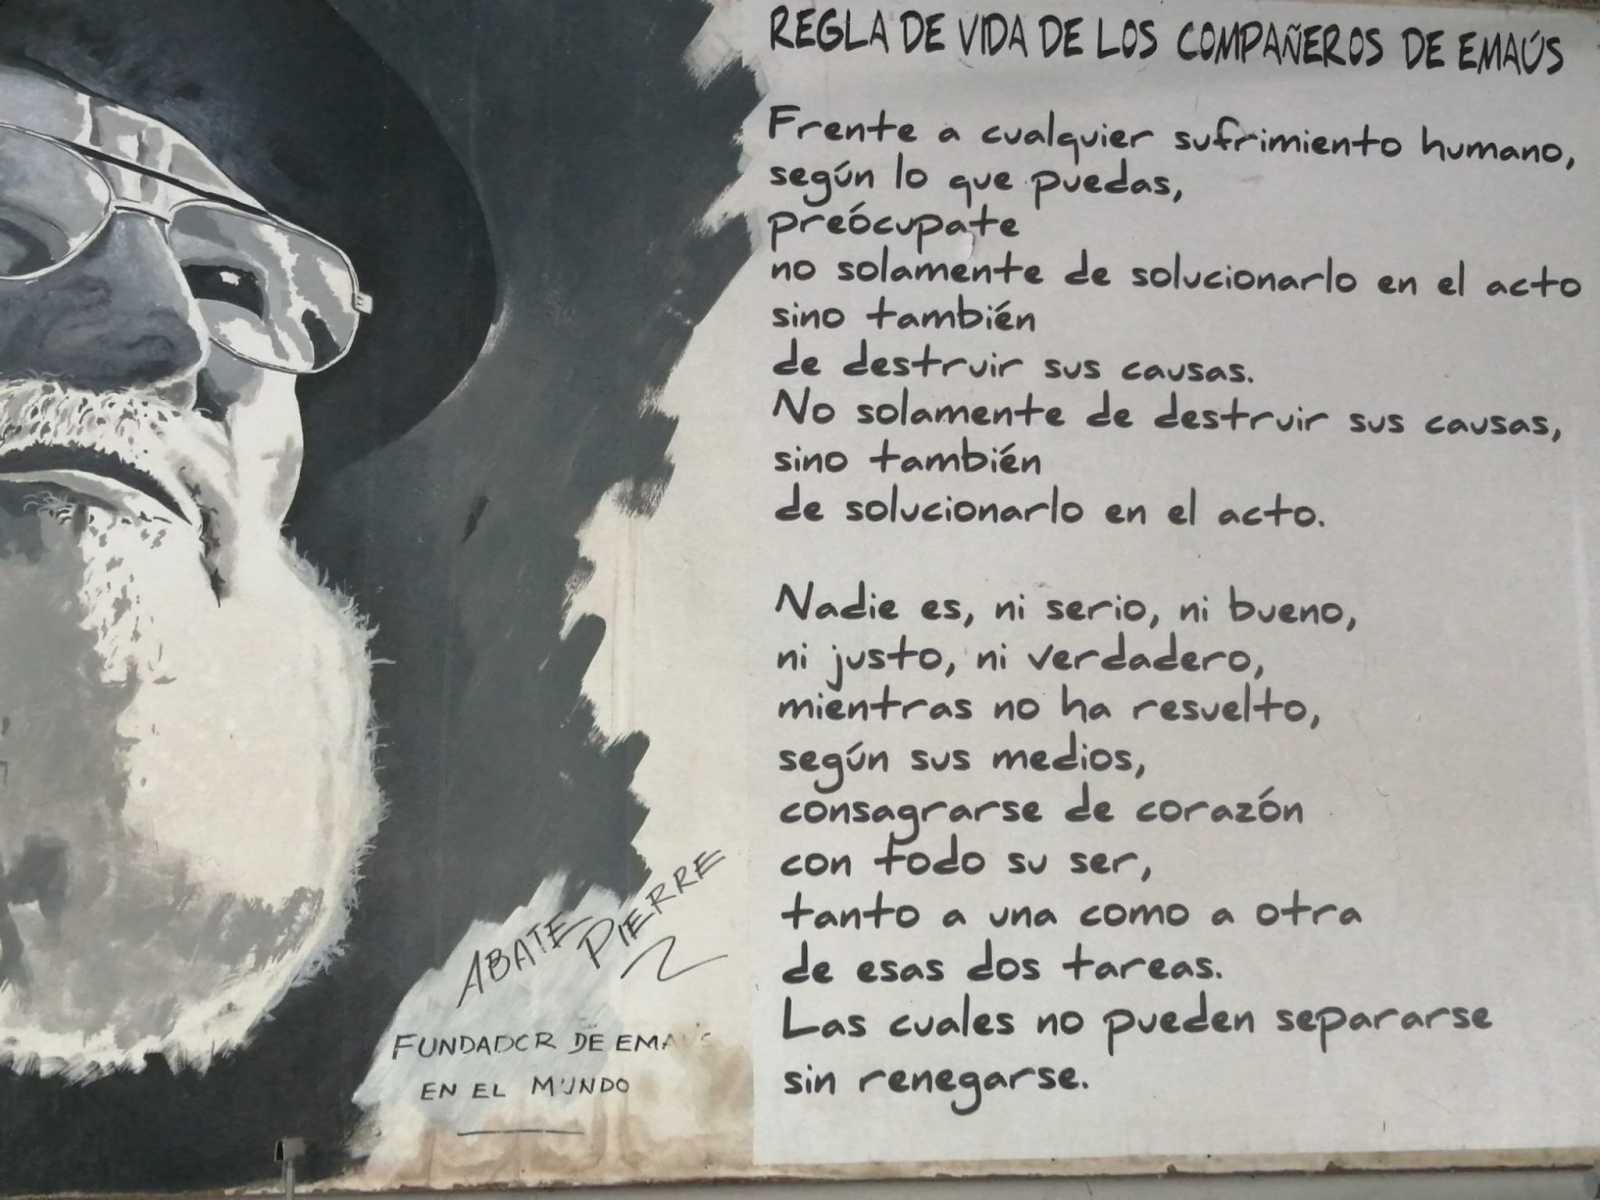 REGLA DE VIDA DE LOS COMPAÑEROS DE EMAÚS
Frente a cualquier sufrimiento humano,
según lo que puedas,
preócupate
no solamente de solucionarlo en el acto
sino también
de destruir sus causas.
No solamente de destruir sus causas,
sino también
de solucionarlo en el acto.
Nadie es, ni serio, ni bueno,
ni justo, ni verdadero,
mientras no ha resuelto,
según sus medios,
consagrarse de corazón
con todo su ser,
tanto a una como a otra
de esas dos tareas.
Las cuales no pueden separarse
sin renegarse.
ABATE PIERRE
FUNDADOR DE EMAÚS
EN EL MUNDO